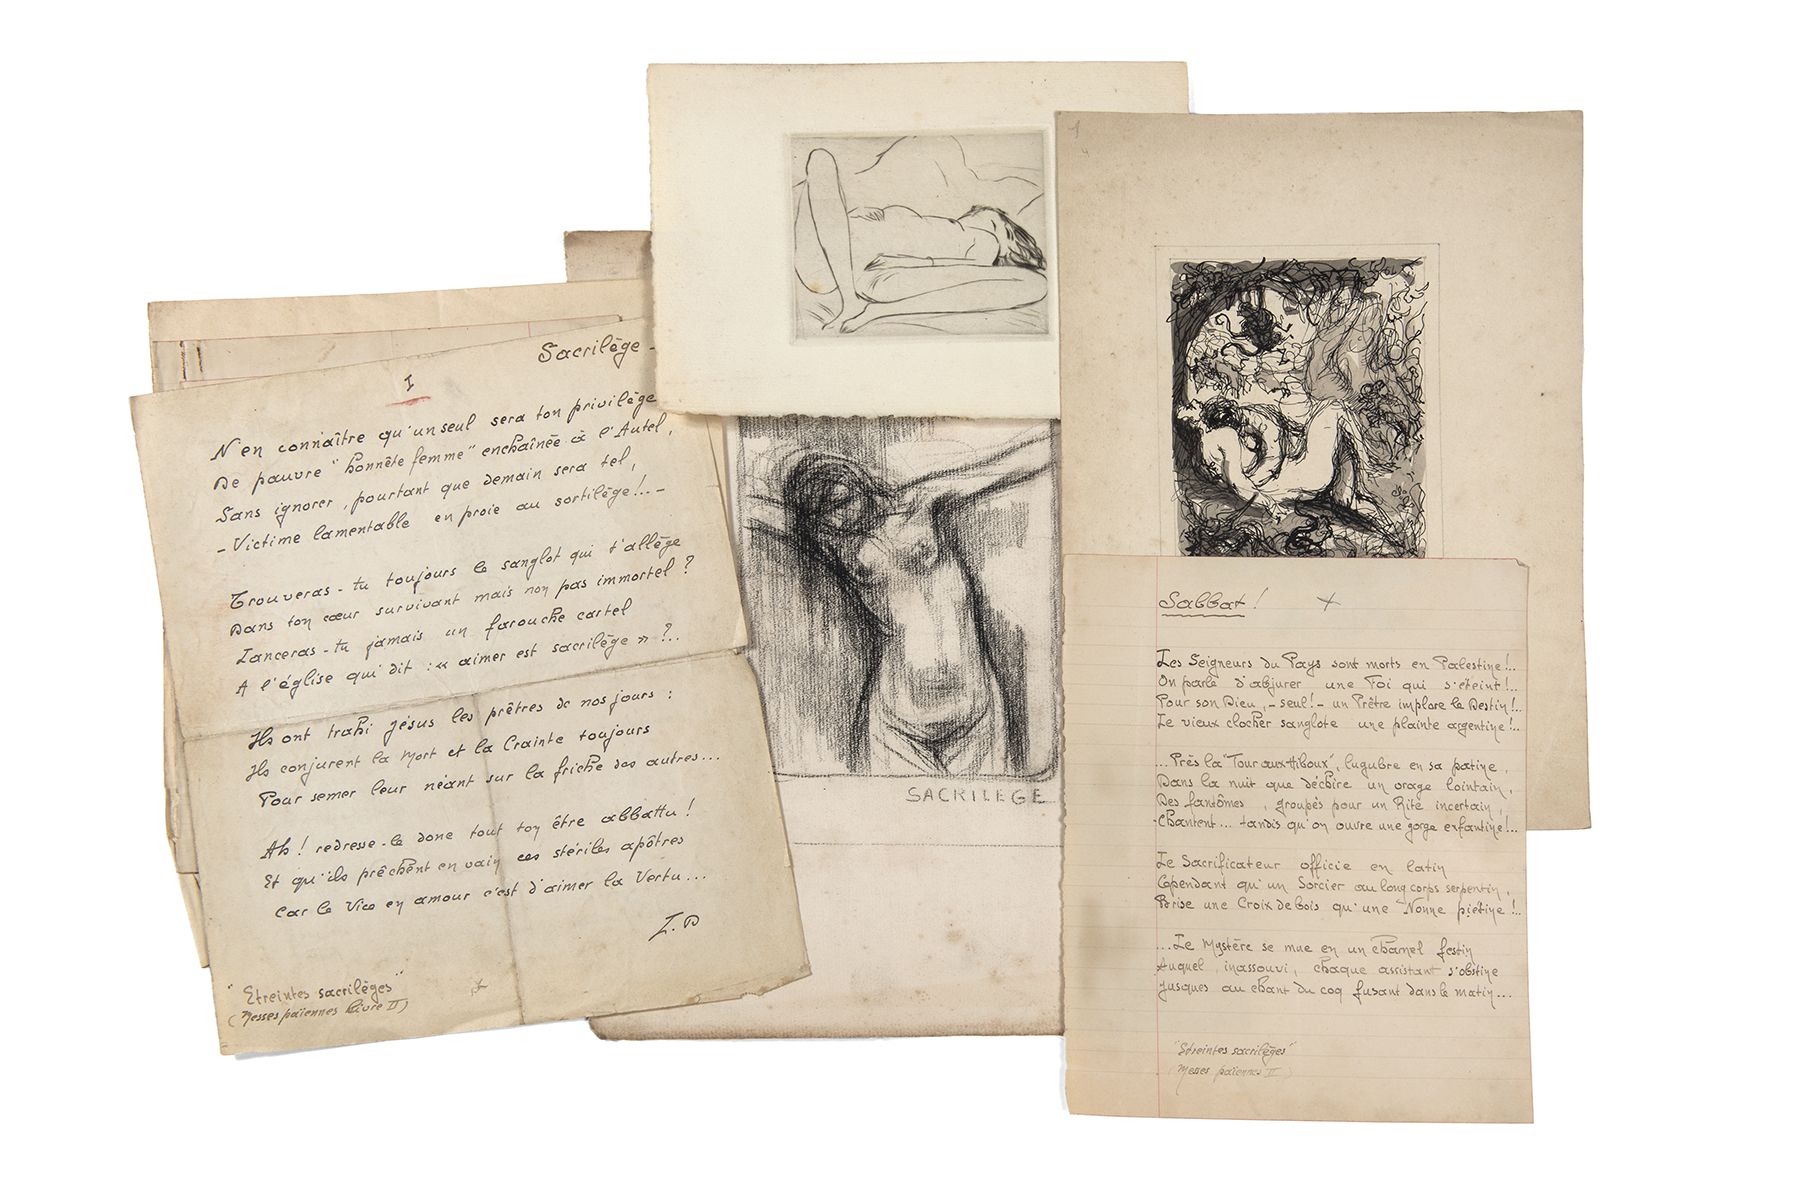 Sacrilège -
I
N'en connaître qu'un seul sera ton privilège
De pauvre "honnête femme" enchaînée à l'Autel,
Sans ignorer, pourtant que demain sera tel,
- Victime lamentable en proie au sortilège!.. -
Trouveras-tu toujours le sanglot qui t'allège
Dans ton cœur survivant mais non pas immortel?
Lanceras-tu jamais un farouche cartel
A l'église qui dit : « aimer est sacrilège » ?..
Ils ont trahi Jésus les prêtres de nos jours :
Ils conjurent la Mort et la Crainte toujours
Pour semer leur néant sur la friche des autres...
Ah! redresse-le donc tout ton être abbattu!
Et qu'ils prêchent en vain ces stériles apôtres
Car le Vice en amour c'est d'aimer la Vertu...
L.D
"Etreintes sacrilèges"
(Messes païennes Livre II)
SACRILEGE
1
Sabbat!
Les Seigneurs du Pays sont morts en Palestine!..
On parle d'abjurer une Foi qui s'éteint!..
Pour son Dieu, - seul! - un Prêtre implore le Destin!..
Le vieux clocher sanglote une plainte argentine!..
...Près la "Tour aux Hiboux", lugubre en sa patine,
Dans la nuit que déchire un orage lointain,
Des fantômes, groupés pour un Rite incertain,
Chantent... tandis qu'on ouvre une gorge enfantine!..
Le Sacrificateur officie en latin
Cependant qu'un Sorcier au long corps serpentin,
Brise une Croix de bois qu'une Nonne piétine!..
...Le Mystère se mue en un charnel festin
Auquel, inassouvi, chaque assistant s'obstine
Jusques au chant du coq fusant dans le matin...
"Etreintes sacrilèges"
(Messes païennes II)